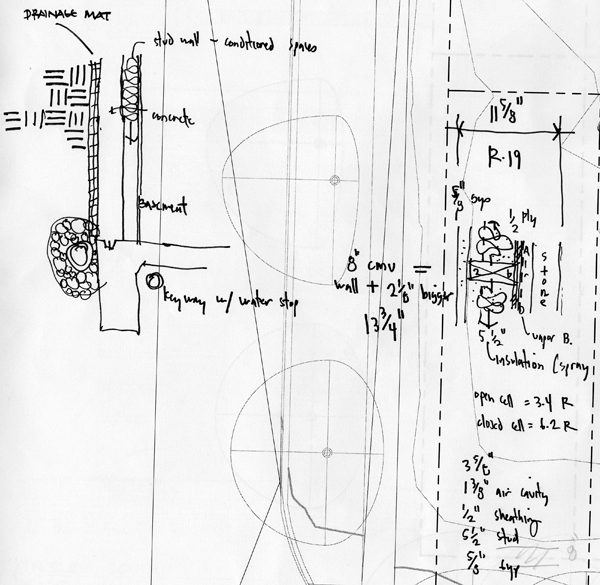 DRAINAGE MAT
stud wall - conditioned spaces
concrete
Basement
keyway w/ water stop
8" cmu =
wall + 2 1/8" bigger
13 3/4"
11 5/8"
R-19
5/8" gyp
1/2 Ply
2 6
Air
Stone
vapor B.
5 1/2"
insulation (spray
open cell = 3.4 R
closed cell = 6.2 R
3 5/8"
1 3/8" air cavity
1/2" sheathing
5 1/2" stud
5/8" gyp